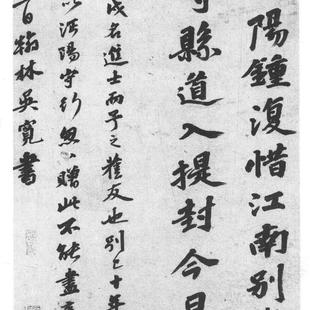 陽鐘復惜江南別
縣道入提封今日
成名進士而予之舊友也別已十年
以沔陽守行忽〻贈此不能盡
日翰林吳寬書